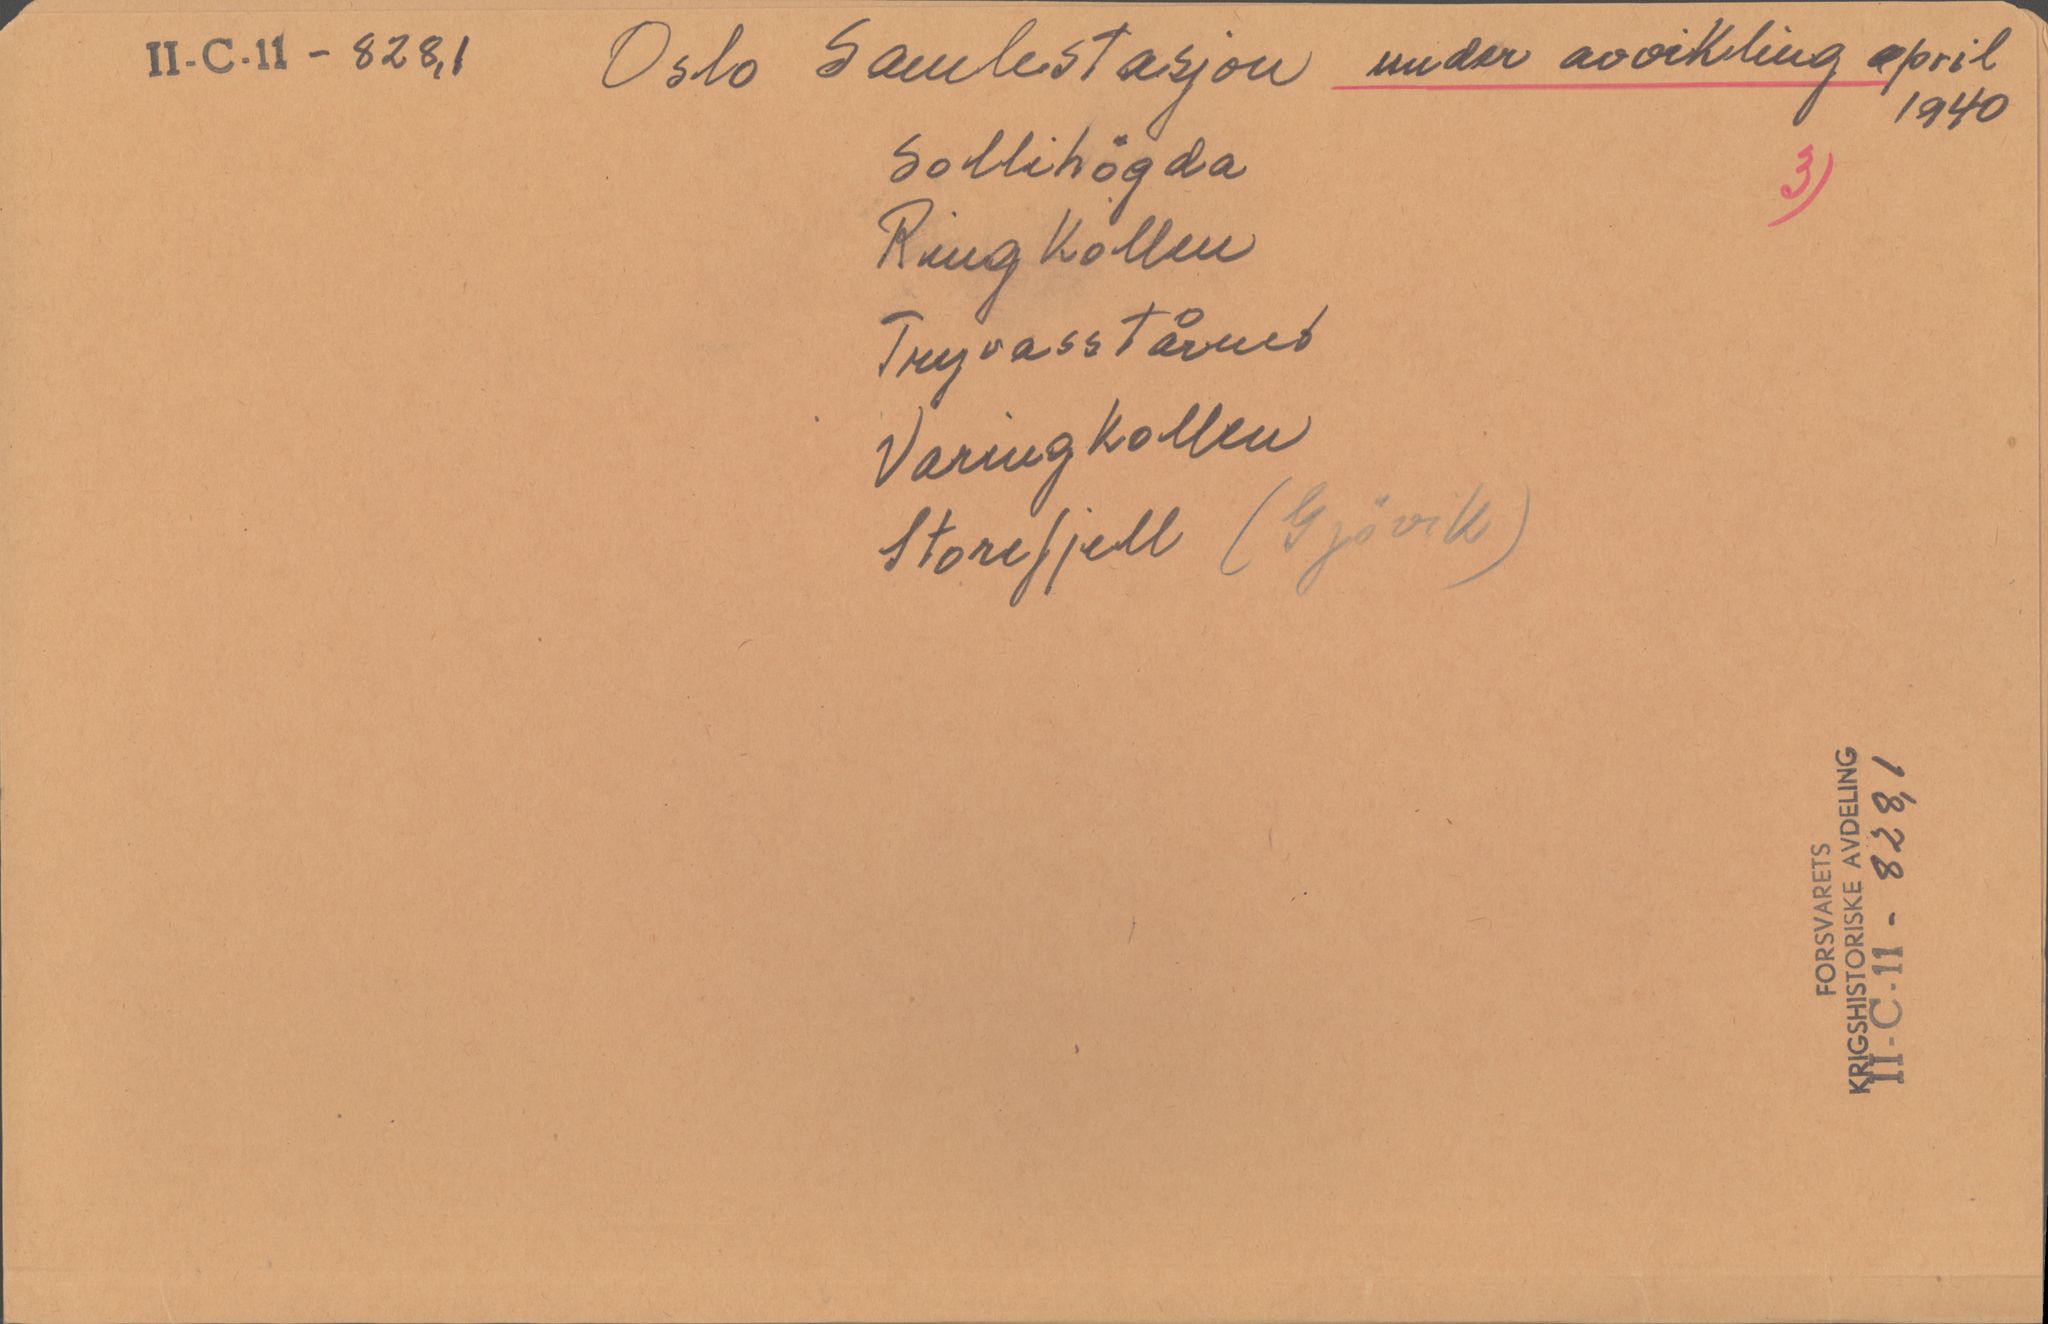 II-C-11 - 828,1 Oslo Samlestasjon under avvikling april
1940
3)
Sollihögda
Ringkollen
Tryvasstårnet
Varingkollen
Storefjell (Gjövik)
FORSVARETS
KRIGSHISTORISKE AVDELING
II-C-11 - 828,1